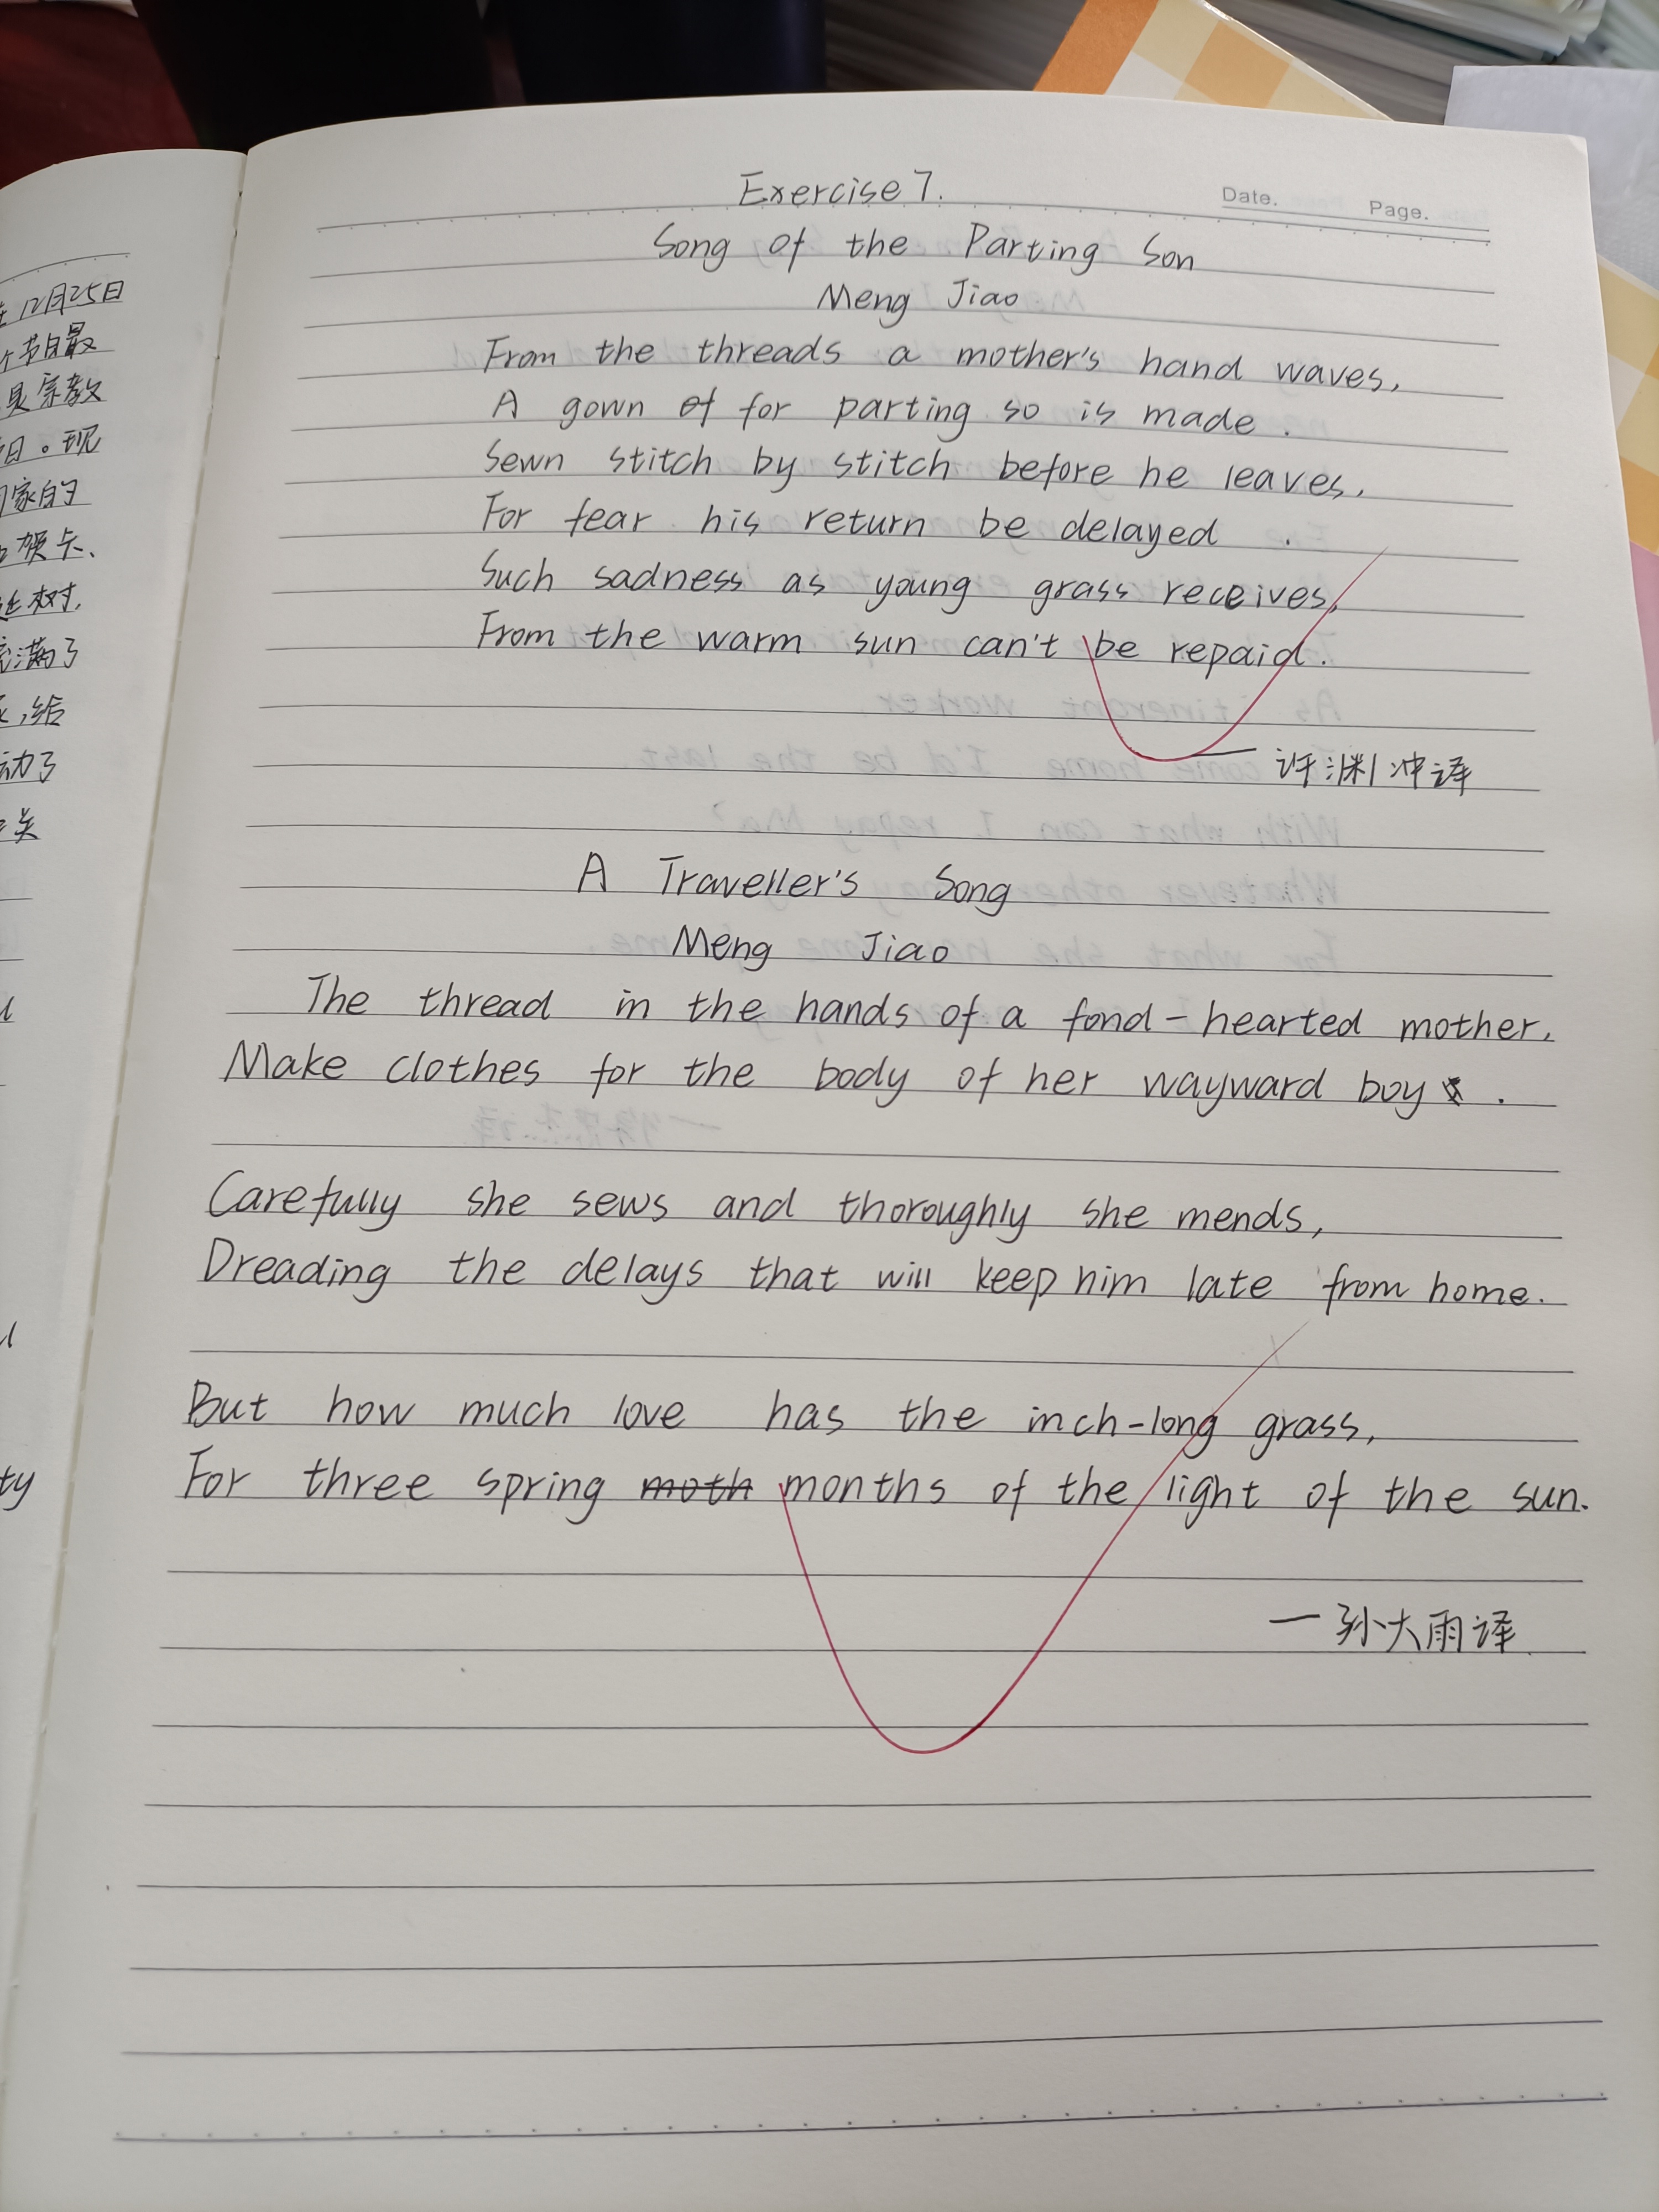 Exercise 7.
Date.
Page.
Song of the Parting Son
Meng Jiao
From the threads a mother's hand waves,
A gown of for parting so is made.
Sewn stitch by stitch before he leaves,
For fear his return be delayed.
Such sadness as young grass receives,
From the warm sun can't be repaid.
—许渊冲译
A Traveller's Song
Meng Jiao
The thread in the hands of a fond-hearted mother,
Make clothes for the body of her wayward boy.
Carefully she sews and thoroughly she mends,
Dreading the delays that will keep him late from home.
But how much love has the inch-long grass,
For three spring moth months of the light of the sun.
—孙大雨译
12月25日
节日最
是宗教
日。现
家的
贺卡、
树,
满了
,给
动了
关
ty